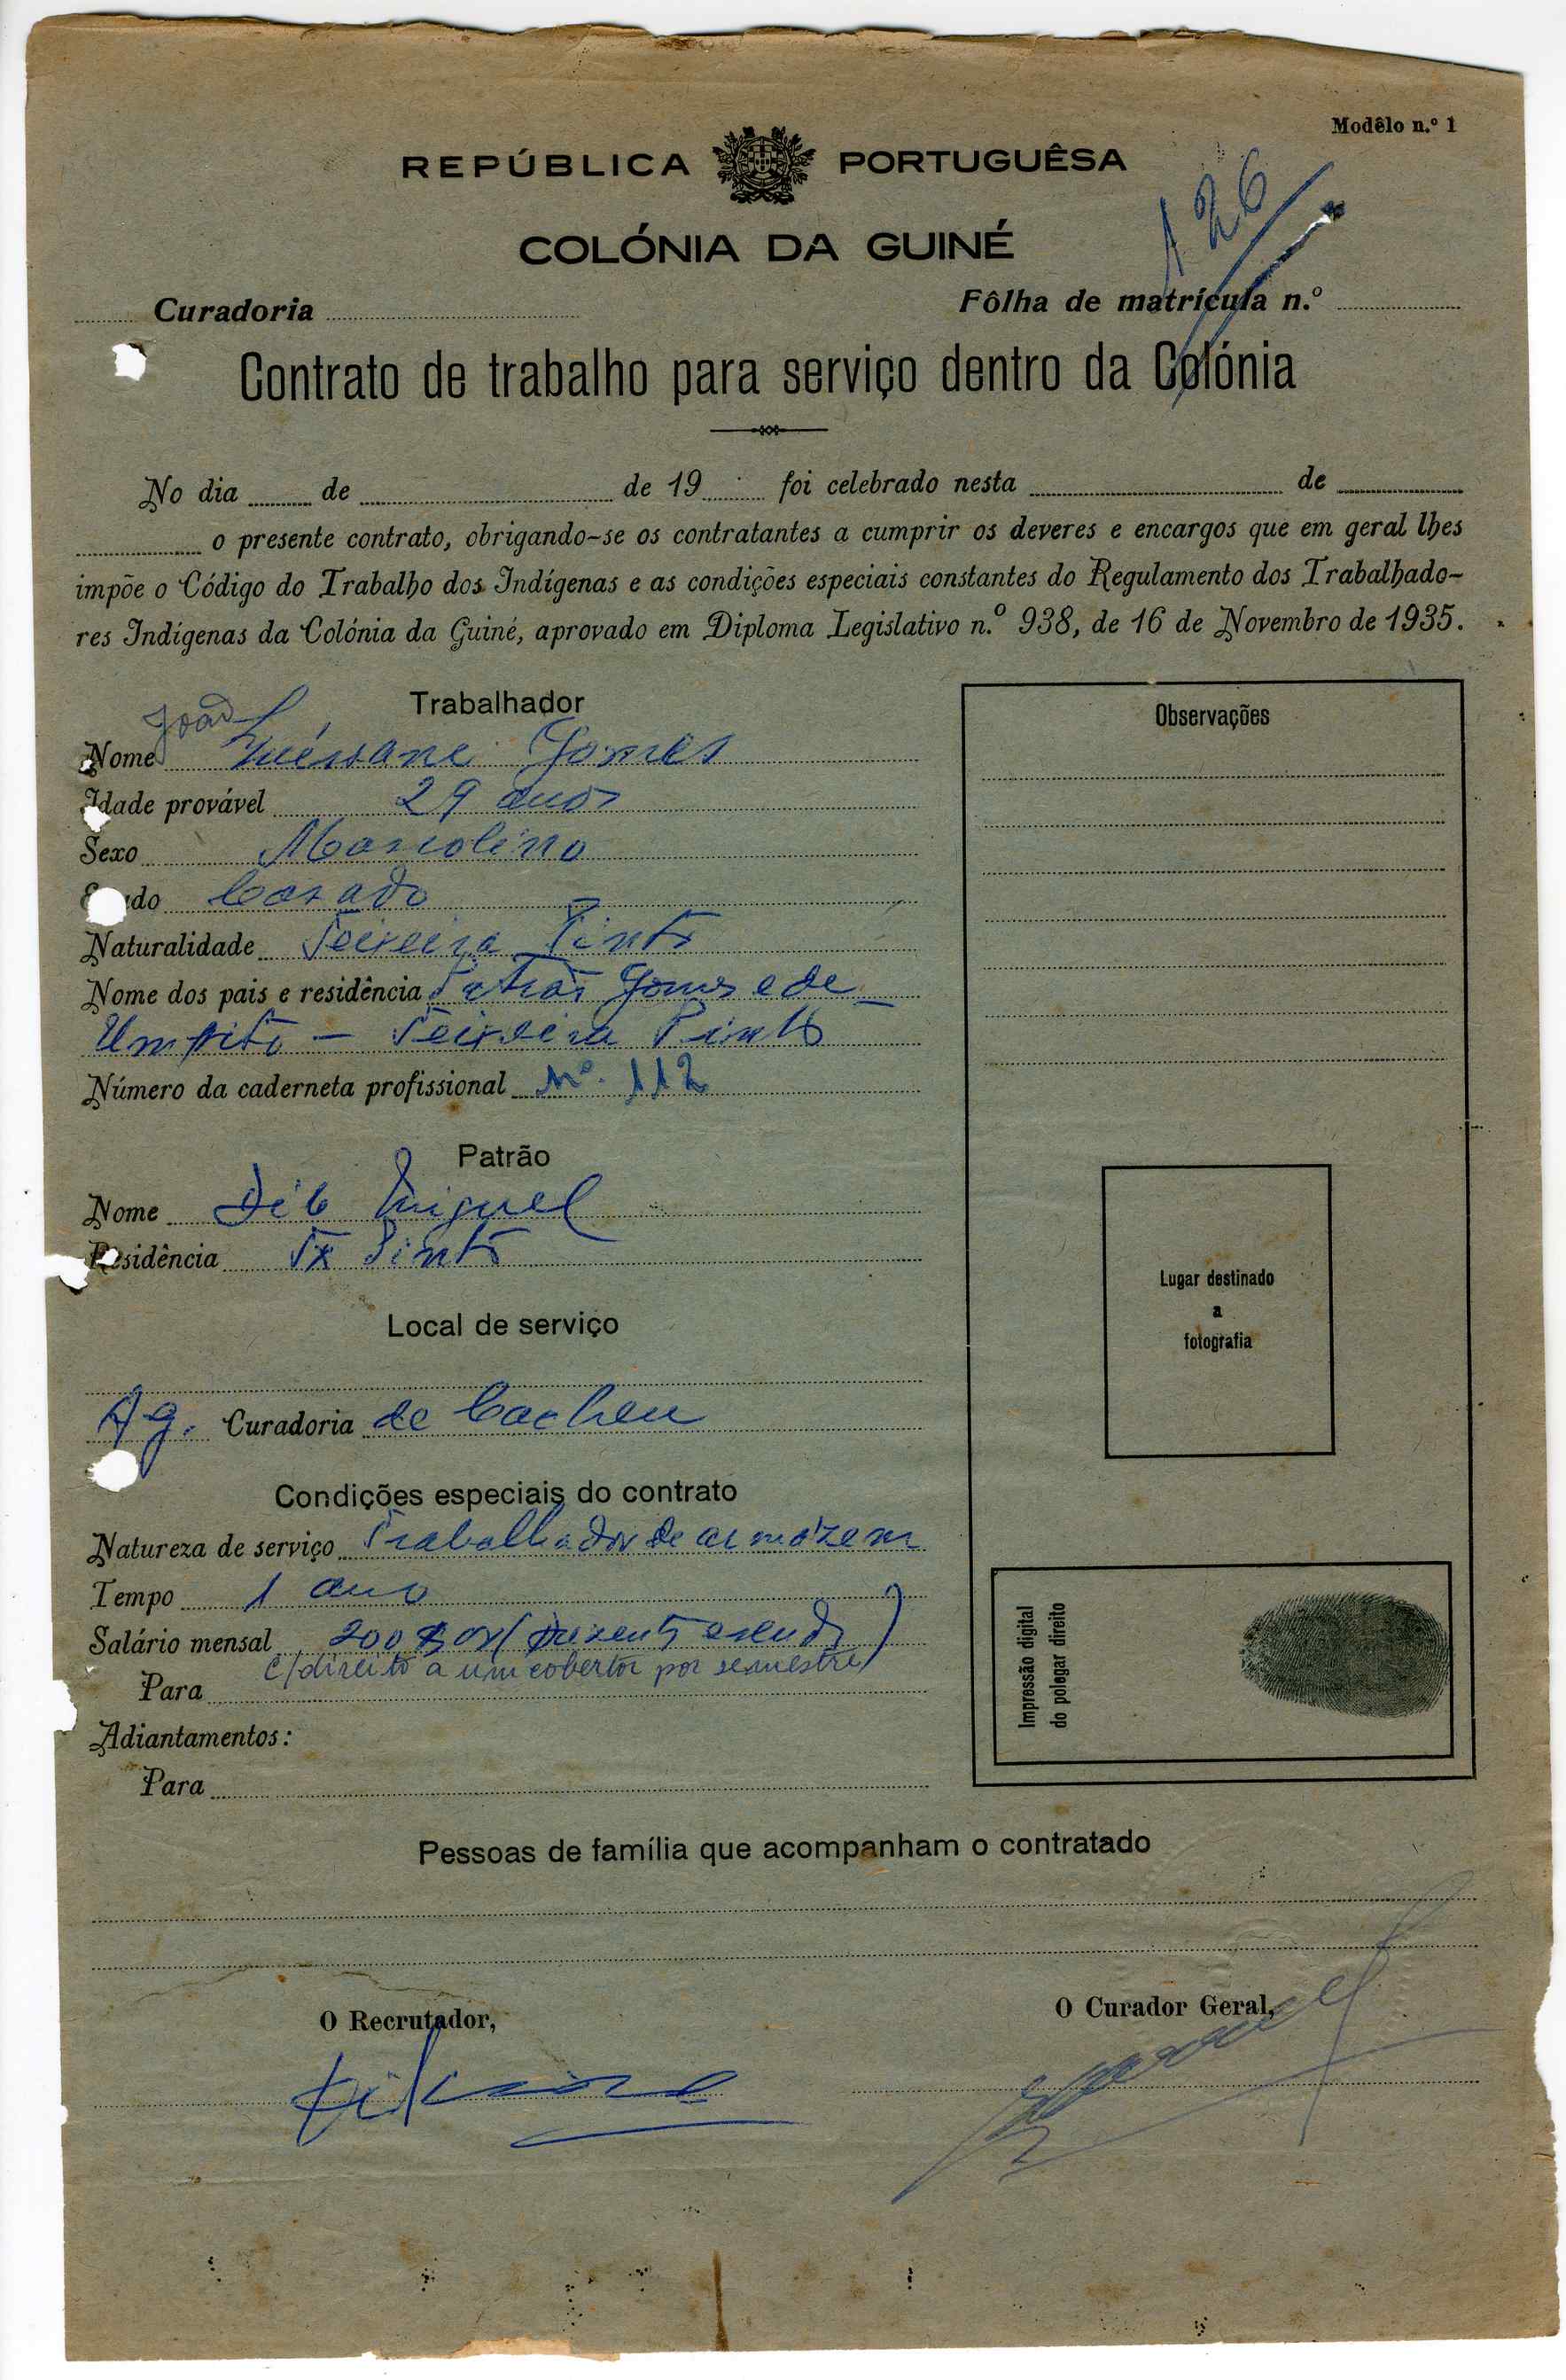 Modêlo n.º 1
REPÚBLICA PORTUGUÊSA
126
COLÓNIA DA GUINÉ
Curadoria
Fôlha de matrícula n.º
Contrato de trabalho para serviço dentro da Colónia
No dia de de 19 foi celebrado nesta de
o presente contrato, obrigando-se os contratantes a cumprir os deveres e encargos que em geral lhes
impõe o Código do Trabalho dos Indígenas e as condições especiais constantes do Regulamento dos Trabalhado-
res Indígenas da Colónia da Guiné, aprovado em Diploma Legislativo n.º 938, de 16 de Novembro de 1935.
Trabalhador
João
Nome Gomes
Idade provável 29 anos
Sexo Mascolino
do Casado
Naturalidade Teixeira Pinto
Nome dos pais e residência Gomes e de
Teixeira Pinto
Número da caderneta profissional Nº. 112
Patrão
Nome Dib Miguel
Residência Tx Pinto
Local de serviço
Ag. Curadoria de Cacheu
Condições especiais do contrato
Natureza de serviço Trabalhador de armazem
Tempo 1 ano
Salário mensal
c/direito a um cobertor por semestre
Para
Adiantamentos:
Para
Observações
Lugar destinado
a
fotografia
Impressão digital
do polegar direito
Pessoas de família que acompanham o contratado
O Recrutador,
O Curador Geral,